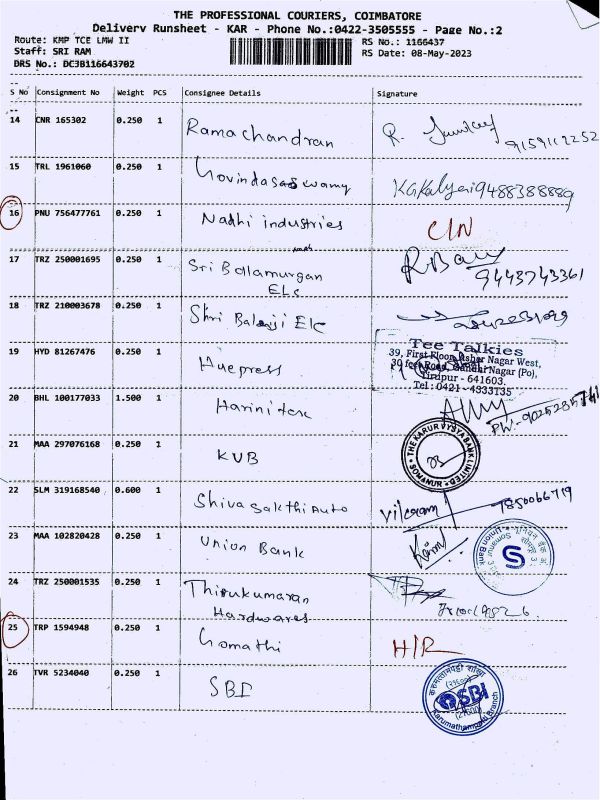 THE PROFESSIONAL COURIERS, COIMBATORE
Delivery Runsheet - KAR - Phone No.:0422-3505555 - Page No.:2
Route: KMP TCE LMW II
Staff: SRI RAM
DRS No.: DC3B116643702
RS No.: 1166437
RS Date: 08-May-2023
S No Consignment No Weight PCS Consignee Details Signature
14 CNR 165302 0.250 1 Ramachandran R. 9159119252
15 TRL 1961060 0.250 1 Govindasaswamy KGKalyani 9488388889
16 PNU 756477761 0.250 1 Nadhi industries C/N
17 TRZ 250001695 0.250 1 Sri Ballamurgan
ELC 9443743361
18 TRZ 210003678 0.250 1 Shri Balaji Elc
19 HYD 81267476 0.250 1 Huepress
Tee Talkies
39, First Floor, Asher Nagar West,
30 feet Road, Gandhi Nagar (Po),
Tirupur - 641603.
Tel : 0421 - 4333135
20 BHL 100177033 1.500 1 Harini tex
21 MAA 297076168 0.250 1 KVB
THE KARUR VYSYA BANK LIMITED
SOMANUR
22 SLM 319168540 0.600 1 Shivasakthi Auto 7850066719
23 MAA 102820428 0.250 1 Union Bank
Union Bank
24 TRZ 250001535 0.250 1 Thirukumaran
Hardwares
25 TRP 1594948 0.250 1 Gomathi H/R
26 TVR 5234040 0.250 1 SBI
SBI
(21600)
Karumathampatti Branch